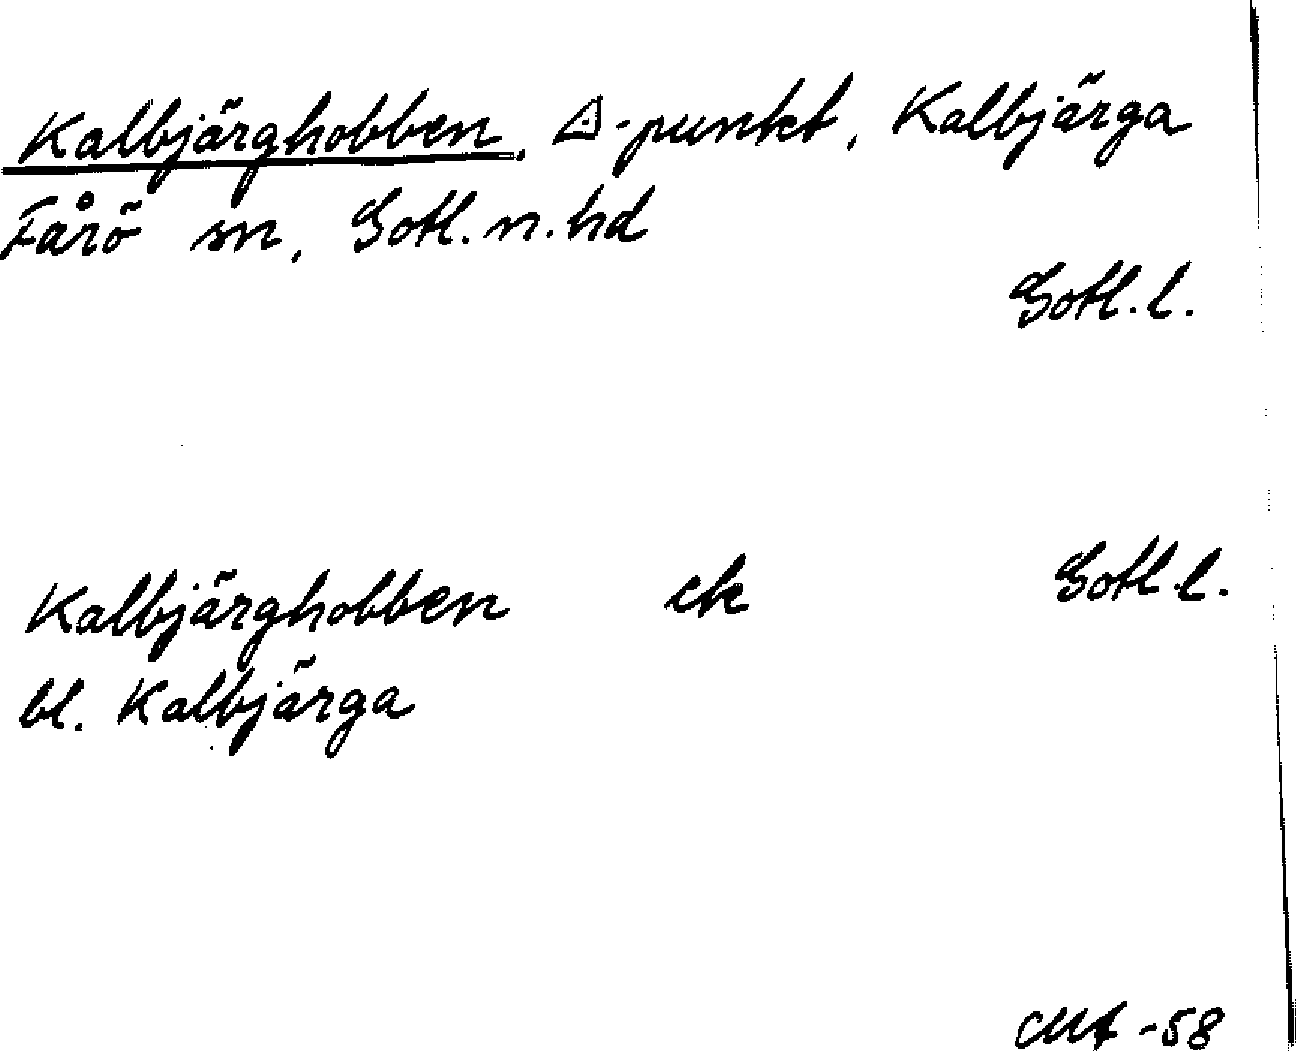 Kalbjärghobben, △-punkt, Kalbjärga
Fårö sn, Gotl. n. hd
Gotl. l.
Kalbjärghobben ek Gotl. l.
bl. Kalbjärga
-58